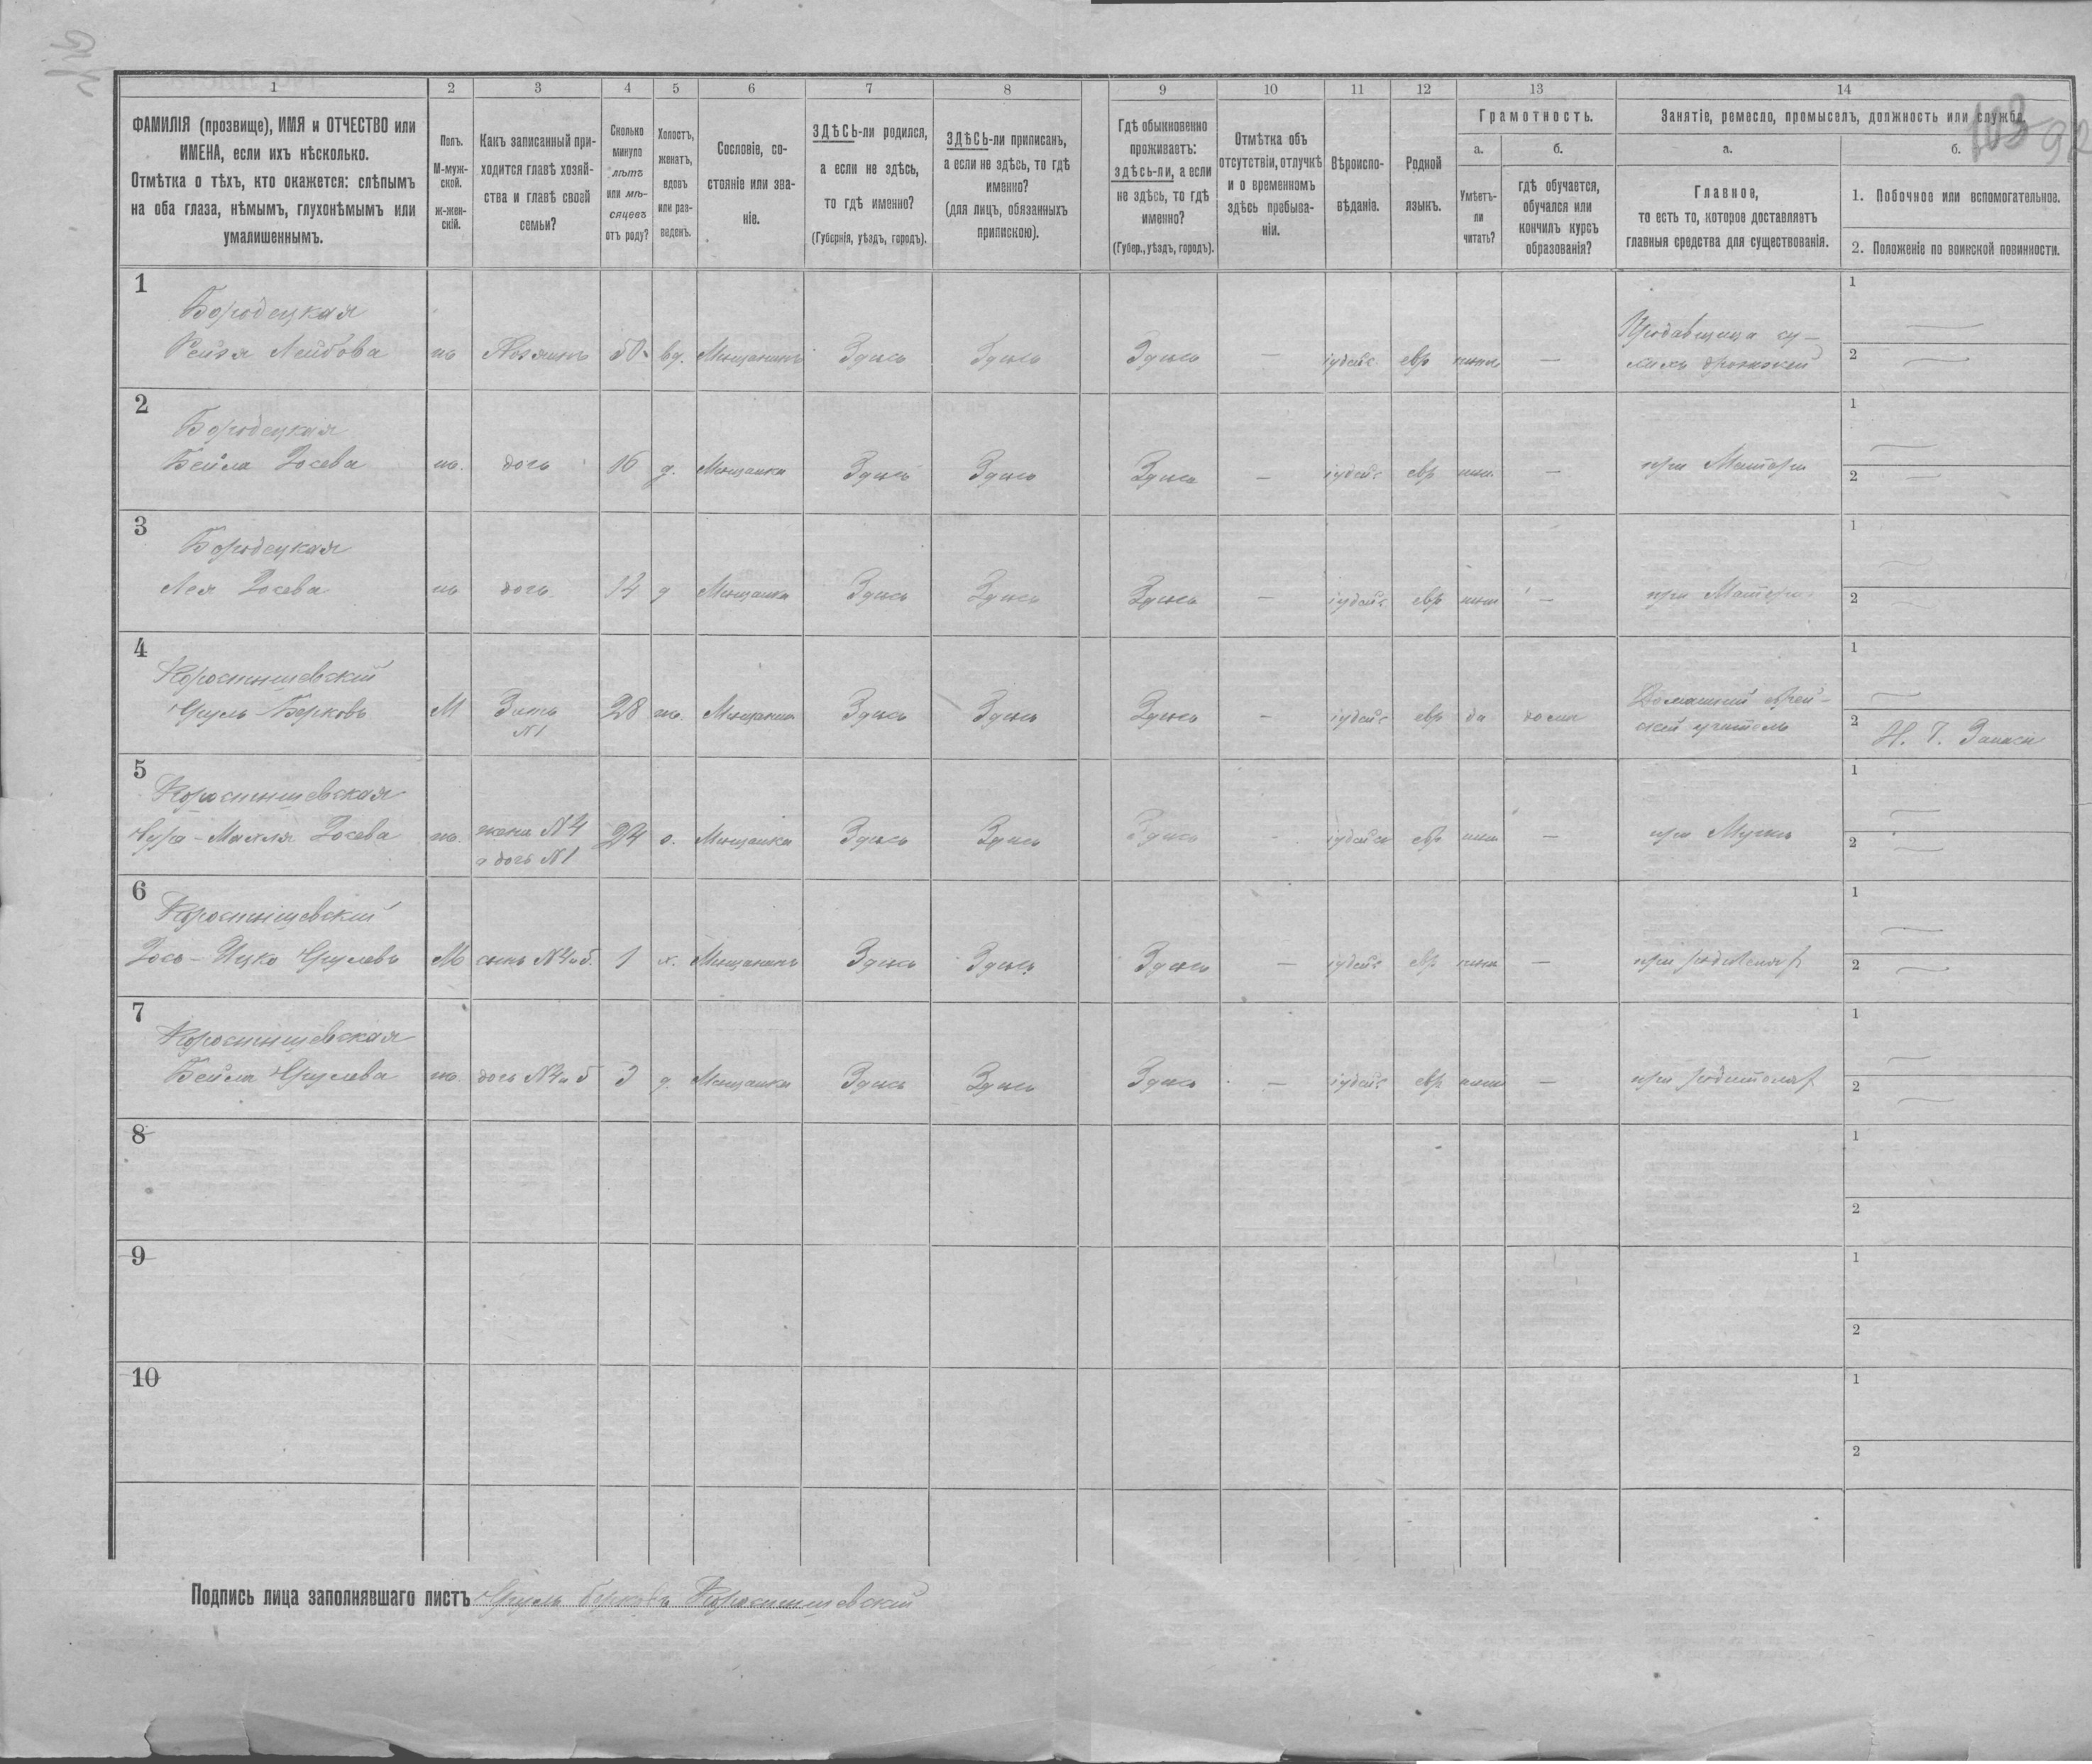 103 92
1 2 3 4 5 6 7 8 9 10 11 12 13 14
ФАМИЛІЯ (прозвище), ИМЯ и ОТЧЕСТВО или
ИМЕНА, если ихъ нѣсколько.
Отмѣтка о тѣхъ, кто окажется: слѣпымъ
на оба глаза, нѣмымъ, глухонѣмымъ или
умалишеннымъ.
Полъ.
М-муж-
ской.
ж-жен-
скій.
Какъ записанный при-
ходится главѣ хозяй-
ства и главѣ своей
семьи?
Сколько
минуло
лѣтъ
или мѣ-
сяцевъ
отъ роду?
Холостъ,
женатъ,
вдовъ
или раз-
веденъ.
Сословіе, со-
стояніе или зва-
ніе.
ЗДѢСЬ-ли родился,
а если не здѣсь,
то гдѣ именно?
(Губернія, уѣздъ, городъ).
ЗДѢСЬ-ли приписанъ,
а если не здѣсь, то гдѣ
именно?
(для лицъ, обязанныхъ
припискою).
Гдѣ обыкновенно
проживаетъ:
здѣсь-ли, а если
не здѣсь, то гдѣ
именно?
(Губер., уѣздъ, городъ).
Отмѣтка объ
отсутствіи, отлучкѣ
и о временномъ
здѣсь пребыва-
ніи.
Вѣроиспо-
вѣданіе.
Родной
языкъ.
Грамотность.
а. б.
Умѣетъ-
ли
читать?
гдѣ обучается,
обучался или
кончилъ курсъ
образованія?
Занятіе, ремесло, промыселъ, должность или служба.
а. б.
Главное,
то есть то, которое доставляетъ
главныя средства для существованія.
1. Побочное или вспомогательное.
2. Положеніе по воинской повинности.
1
Бородецкая
Рейзя Лейбова хозяинъ 50 вд. Мещанинъ Здѣсь Здѣсь Здѣсь — іудейс евр — Продавщица
1 —
2 —
2
Бородецкая
Бейла Іосева дочь 16 д. Мещанка Здѣсь Здѣсь Здѣсь — іудейс евр — при Матери
1 —
2 —
3
Бородецкая
Лея Іосева дочь 14 д Мещанка Здѣсь Здѣсь Здѣсь — іудейс евр — при Матери
1 —
2 —
4
Коростышевскій
Сруль Берковъ М Зять 28 ж. Мещанинъ Здѣсь Здѣсь Здѣсь — іудейс евр да дома Домашній еврей-
N1 скій учитель
1 —
2
5
Коростышевская
Сура-Махля Іосева жена N4 24 з. Мещанка Здѣсь Здѣсь Здѣсь — іудейс евр — при Мужѣ
и дочь N1
1 —
2 —
6
Коростышевскій
Іось-Ицко Срулевъ М сынъ N4 и 5 1 х. Мещанинъ Здѣсь Здѣсь Здѣсь — іудейс евр — при родителях
1 —
2 —
7
Коростышевская
Бейла Срулева дочь N4 и 5 3 д. Мещанка Здѣсь Здѣсь Здѣсь — іудейс евр — при родителях
1 —
2 —
8
1
2
9
1
2
10
1
2
Подпись лица заполнявшаго листъ Сруль Берковъ Коростышевскій